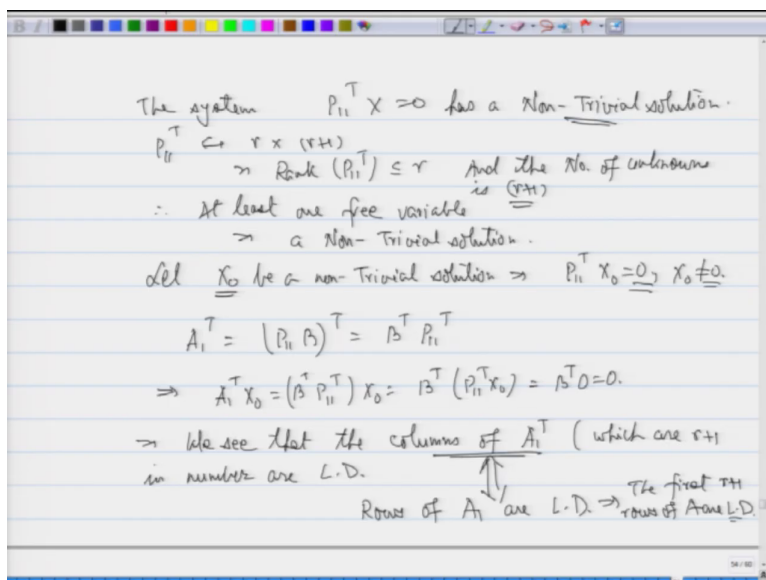 The system P₁₁ᵀ X = 0 has a Non-Trivial solution.
P₁₁ᵀ ↔ r x (r+1)
⇒ Rank (P₁₁ᵀ) ≤ r And the No. of unknowns
is (r+1)
∴ At least one free variable
⇒ a Non-Trivial solution.
Let X₀ be a non-Trivial solution ⇒ P₁₁ᵀ X₀ = 0, X₀ ≠ 0.
A₁ᵀ = (P₁₁ B)ᵀ = Bᵀ P₁₁ᵀ
⇒ A₁ᵀ X₀ = (Bᵀ P₁₁ᵀ) X₀ = Bᵀ (P₁₁ᵀ X₀) = Bᵀ 0 = 0.
⇒ We see that the columns of A₁ᵀ (which are r+1
in number are L.D.
Rows of A₁ are L.D. ⇒ The first r+1
rows of A are L.D.
54 / 60